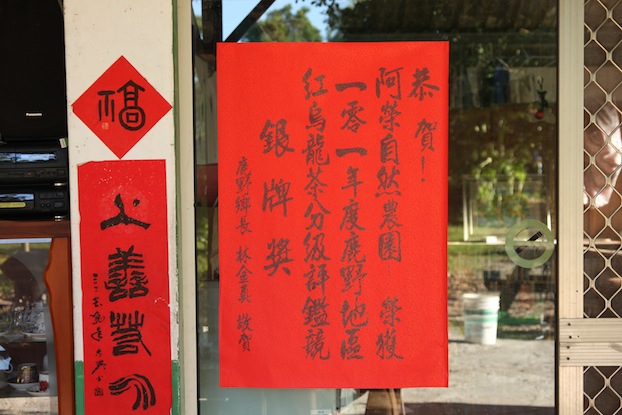 恭賀！
阿榮自然農園 榮獲
一零一年度鹿野地區
紅烏龍茶分級評鑑競
銀牌獎
鹿野鄉長 林金真 敬賀
福
上善若水
Panasonic